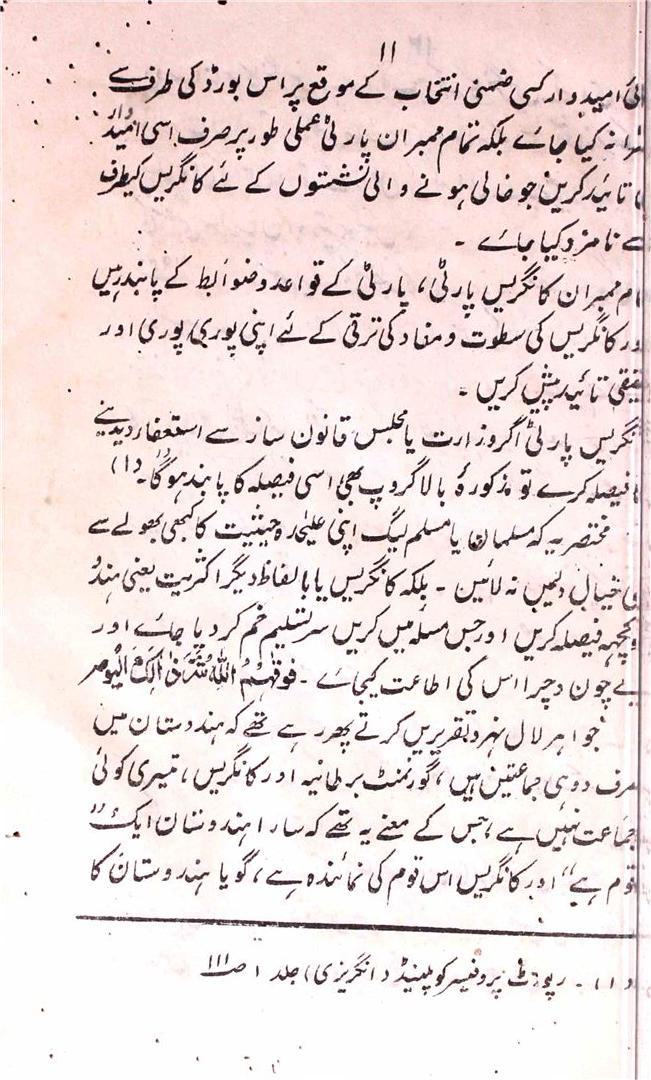 ۱۱
امیدوار کسی ضمنی انتخاب کے موقع پر اس بورڈ کی طرف سے
نہ کیا جائے بلکہ تمام ممبران پارٹی عملی طور پر صرف اسی امیدوار
تائید کریں جو خالی ہونے والی نشستوں کے لئے کانگریس کیطرف
سے نامزد کیا جائے ۔
ممبران کانگریس پارٹی، پارٹی کے قواعد و ضوابط کے پابند رہیں
اور کانگریس کی سطوت و مفاد کی ترقی کے لئے اپنی پوری پوری اور
تائید پیش کریں ۔
نگریس پارٹی اگر وزارت یا مجلس قانون ساز سے استعفار دیدینے
فیصلہ کرے تو مذکورۂ بالا گروپ بھی اسی فیصلہ کا پابند ہوگا۔ (۱)
مختصر یہ کہ مسلمان یا مسلم لیگ اپنی علیٰحدہ حیثیت کا کبھی بھولے سے
خیال دلمیں نہ لائیں ۔ بلکہ کانگریس یا بالفاظ دیگر اکثریت یعنی ہندو
کچھ فیصلہ کریں اور جس مسلہ میں کریں سر تسلیم خم کر دیا جائے اور
بے چون و چرا اس کی اطاعت کیجائے ۔ فوقٰہم اللہ شر ذالک الیوم
جواہر لال نہرو تقریریں کرتے پھر رہے تھے کہ ہندوستان میں
صرف دو ہی جماعتیں ہیں، گورنمنٹ برطانیہ اور کانگریس، تیسری کوئی
جماعت نہیں ہے، جس کے معنے یہ تھے کہ سارا ہندوستان ایک "
قوم ہے" اور کانگریس اس قوم کی نمائندہ ہے، گویا ہندوستان کا
(۱) ۔ رپورٹ پروفیسر کوپلینڈ (انگریزی) جلد ۱ صـ ۱۱۱